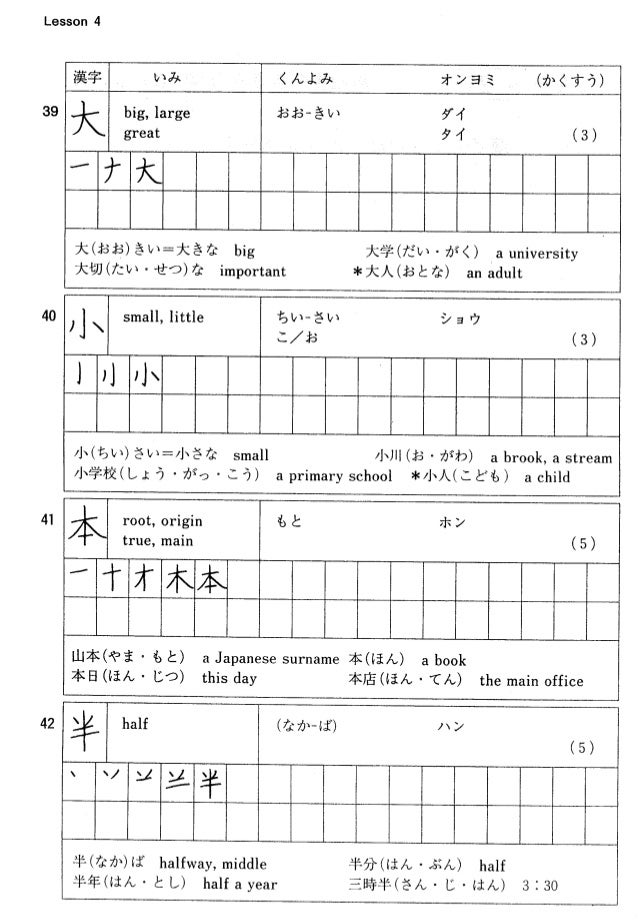 Lesson 4
漢字 いみ くんよみ オンヨミ (かくすう)
39 大 big, large おお-きい ダイ
great タイ (3)
一 ナ 大
大(おお)きい=大きな big 大学(だい・がく) a university
大切(たい・せつ)な important *大人(おとな) an adult
40 小 small, little ちい-さい ショウ
こ/お (3)
亅 小
小(ちい)さい=小さな small 小川(お・がわ) a brook, a stream
小学校(しょう・がっ・こう) a primary school *小人(こども) a child
41 本 root, origin もと ホン
true, main (5)
一 十 才 木 本
山本(やま・もと) a Japanese surname 本(ほん) a book
本日(ほん・じつ) this day 本店(ほん・てん) the main office
42 半 half (なか-ば) ハン
(5)
丶 丷 半
半(なか)ば halfway, middle 半分(はん・ぶん) half
半年(はん・とし) half a year 三時半(さん・じ・はん) 3:30